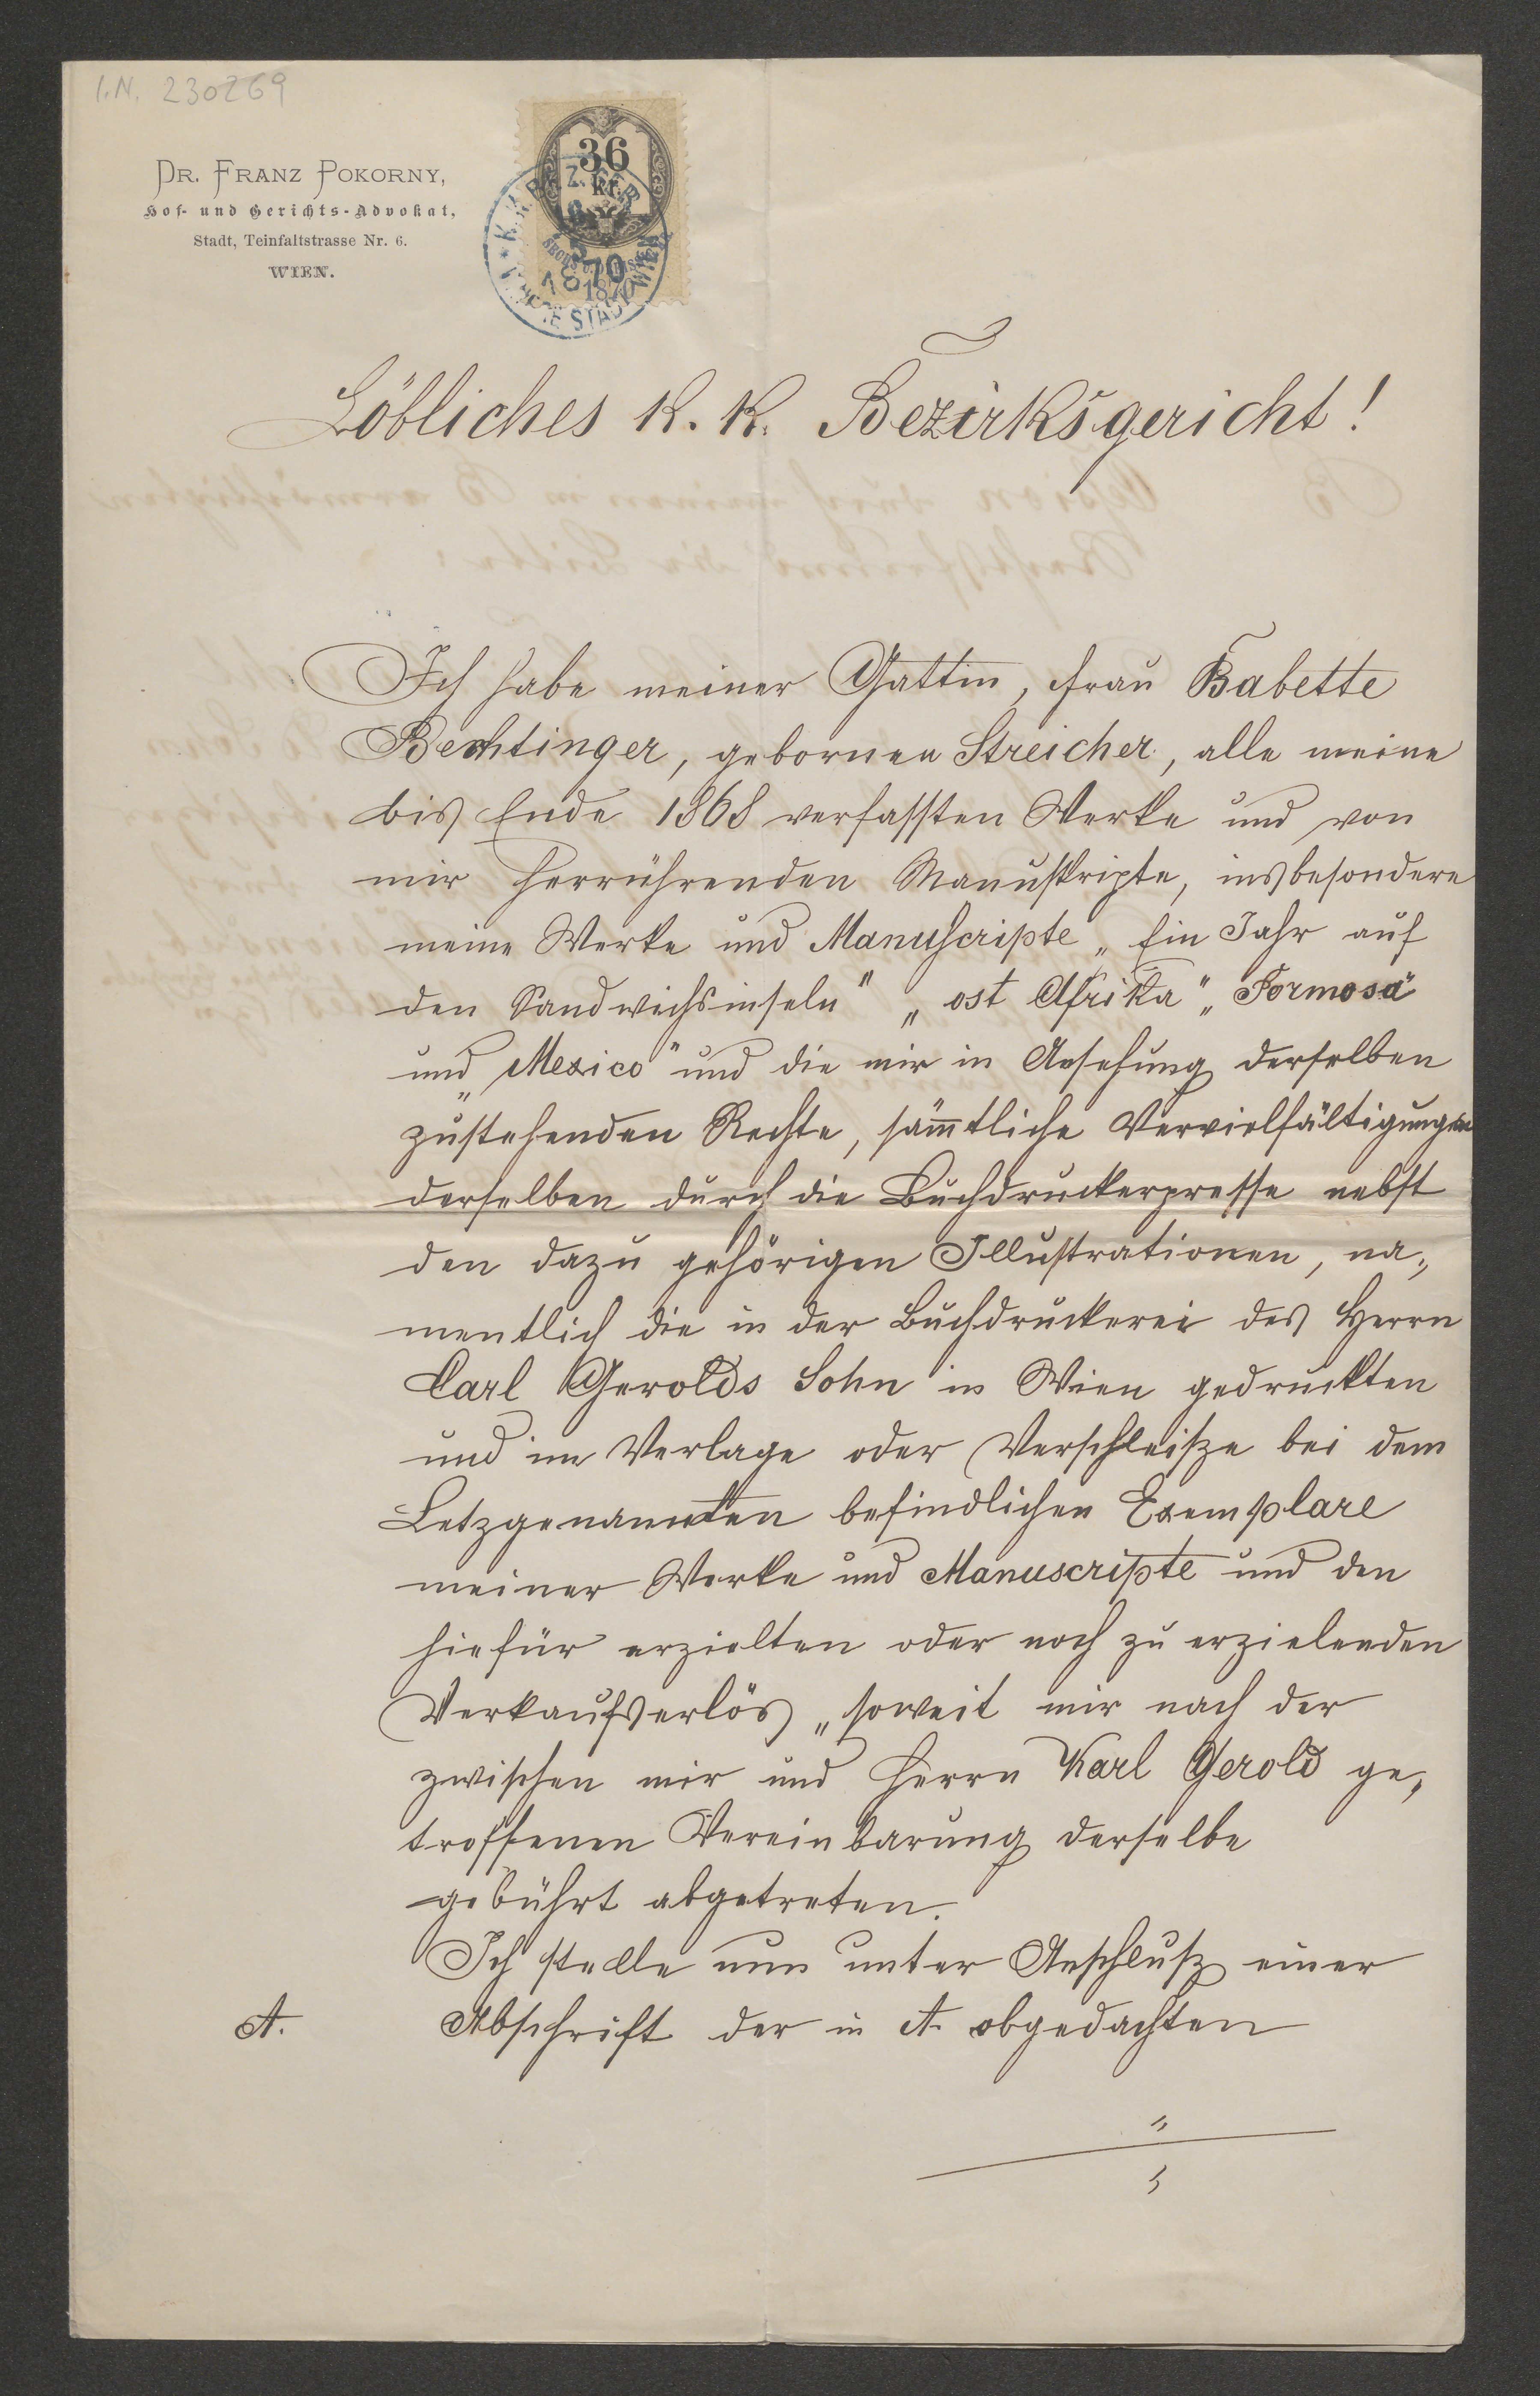 I.N. 230269
DR. FRANZ POKORNY,
Hof- und Gerichts-Advokat,
Stadt, Teinfaltstrasse Nr. 6.
WIEN.
36
kr.
1870
Löbliches k. k. Bezirksgericht!
Ich habe meiner Gattin, Frau Babette
Bechtinger, gebornen Streicher, alle meine
bis Ende 1868 verfassten Werke und von
mir herrührenden Manuskripte, insbesondere
meine Werke und Manuscripte „Ein Jahr auf
den Sandwichsinseln" „ost Afrika" „Formosa"
und „Mexico" und die mir in Ansehung derselben
zustehenden Rechte, säm̅tliche Vervielfältigungen
derselben durch die Buchdruckerpresse nebst
den dazu gehörigen Illustrationen, na„
mentlich die in der Buchdruckerei des Herrn
Carl Gerolds Sohn in Wien gedruckten
und im Verlage oder Verschleiße bei dem
Letzgenannten befindlichen Exemplare
meiner Werke und Manuscripte und den
hiefür erzielten oder noch zu erzielenden
Verkaufserlös „soweit mir nach der
zwischen mir und Herrn Karl Gerold ge„
troffenen Vereinbarung derselbe
gebührt abgetreten.
Ich stelle nun unter Anschluß einer
A. Abschrift der in A. obgedachten